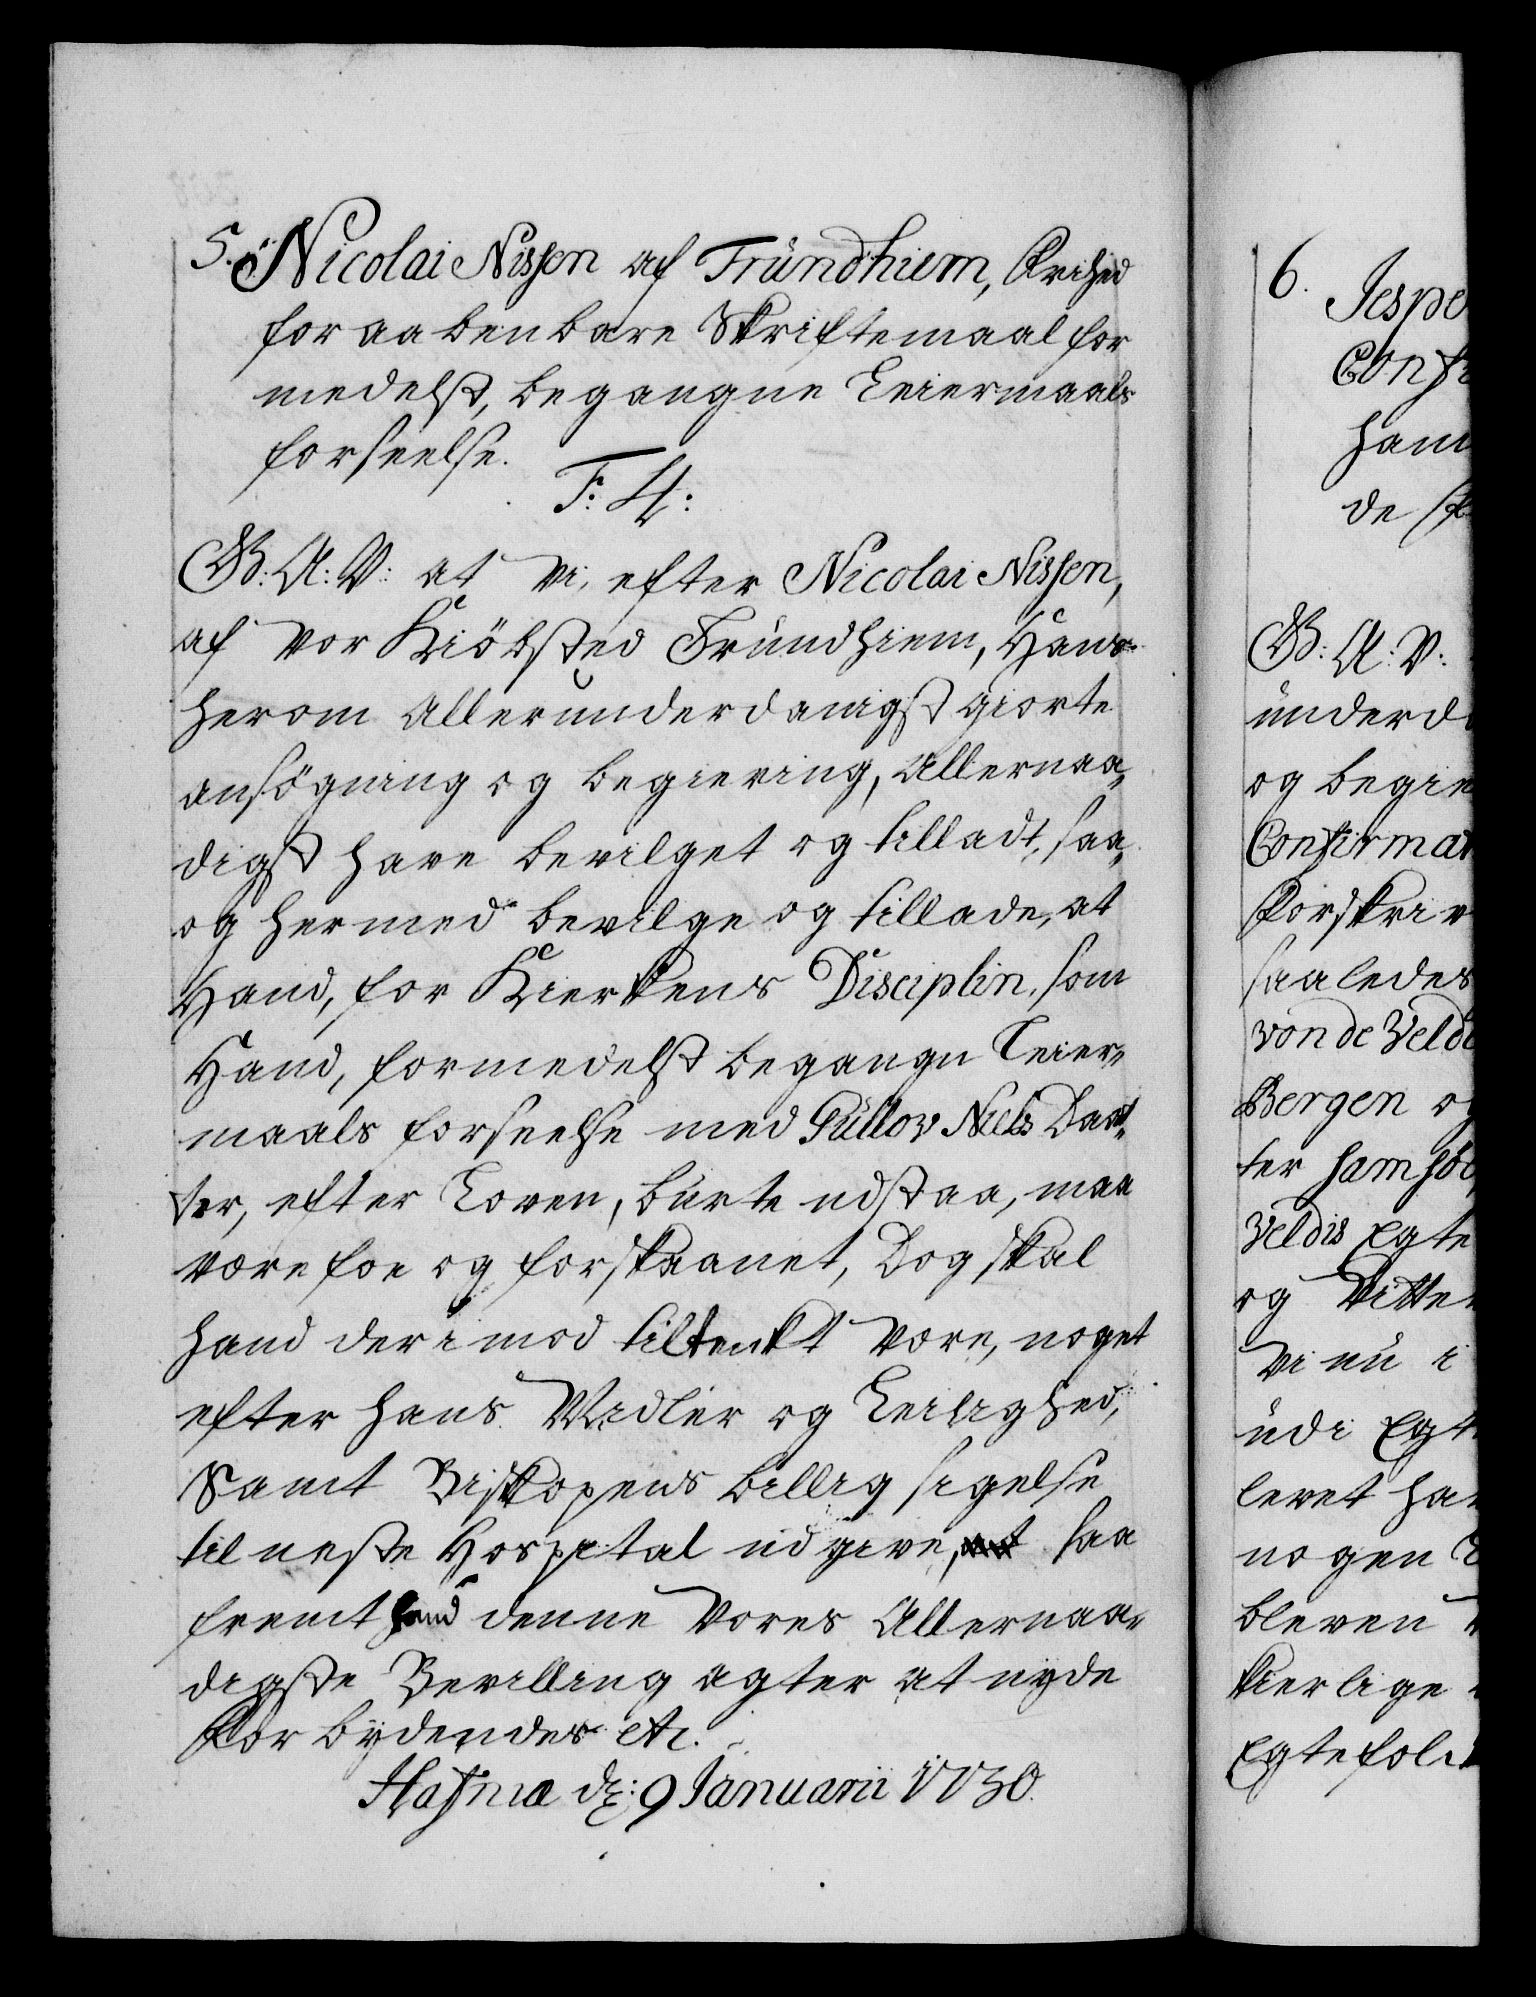 5. Nicolai Nissen af Trundhiem, Frihed
for aabenbare Skriftemaal for
medelst, begangne Leiermaals
forseelse.
F: 4:
G: A: V: at Vi, efter Nicolai Nissen,
af vor Kiöbsted Trundhiem, Hans
herom Allerunderdanigst giorte
ansögning og begiering, Allernaa„
digst have bevilget og tilladt, saa„
og hermed bevilge og tillade, at
Hand, for Kierkens Disciplin, som
Hand, formedelst begangen Leier„
maals forseelse med Güllov Niels Daat„
ter, efter Loven, burte udstaa, maa
være frie og forskaanet, Dog skal
hand derimod tiltenkt være, noget
efter hans Midler og Leilighed,
Samt Biskopens billig sigelse
til neste Hospital udgive, saa
fremt hand denne Vores Allernaa„
digste Bevilling agter at nyde
Forbydendes etc.
Hafniæ d: 9 Januarii 1730.
6. Jespe
Conf
ham
de
G: A: V:
underd
og begie
Confirmat
Forskriv
saaledes
von de Veld
Bergen og
ter
Veldis Egte
og Witte
Vi nu i
udi Egt
levet ha
nogen
bleven
kierlige
Egtefol